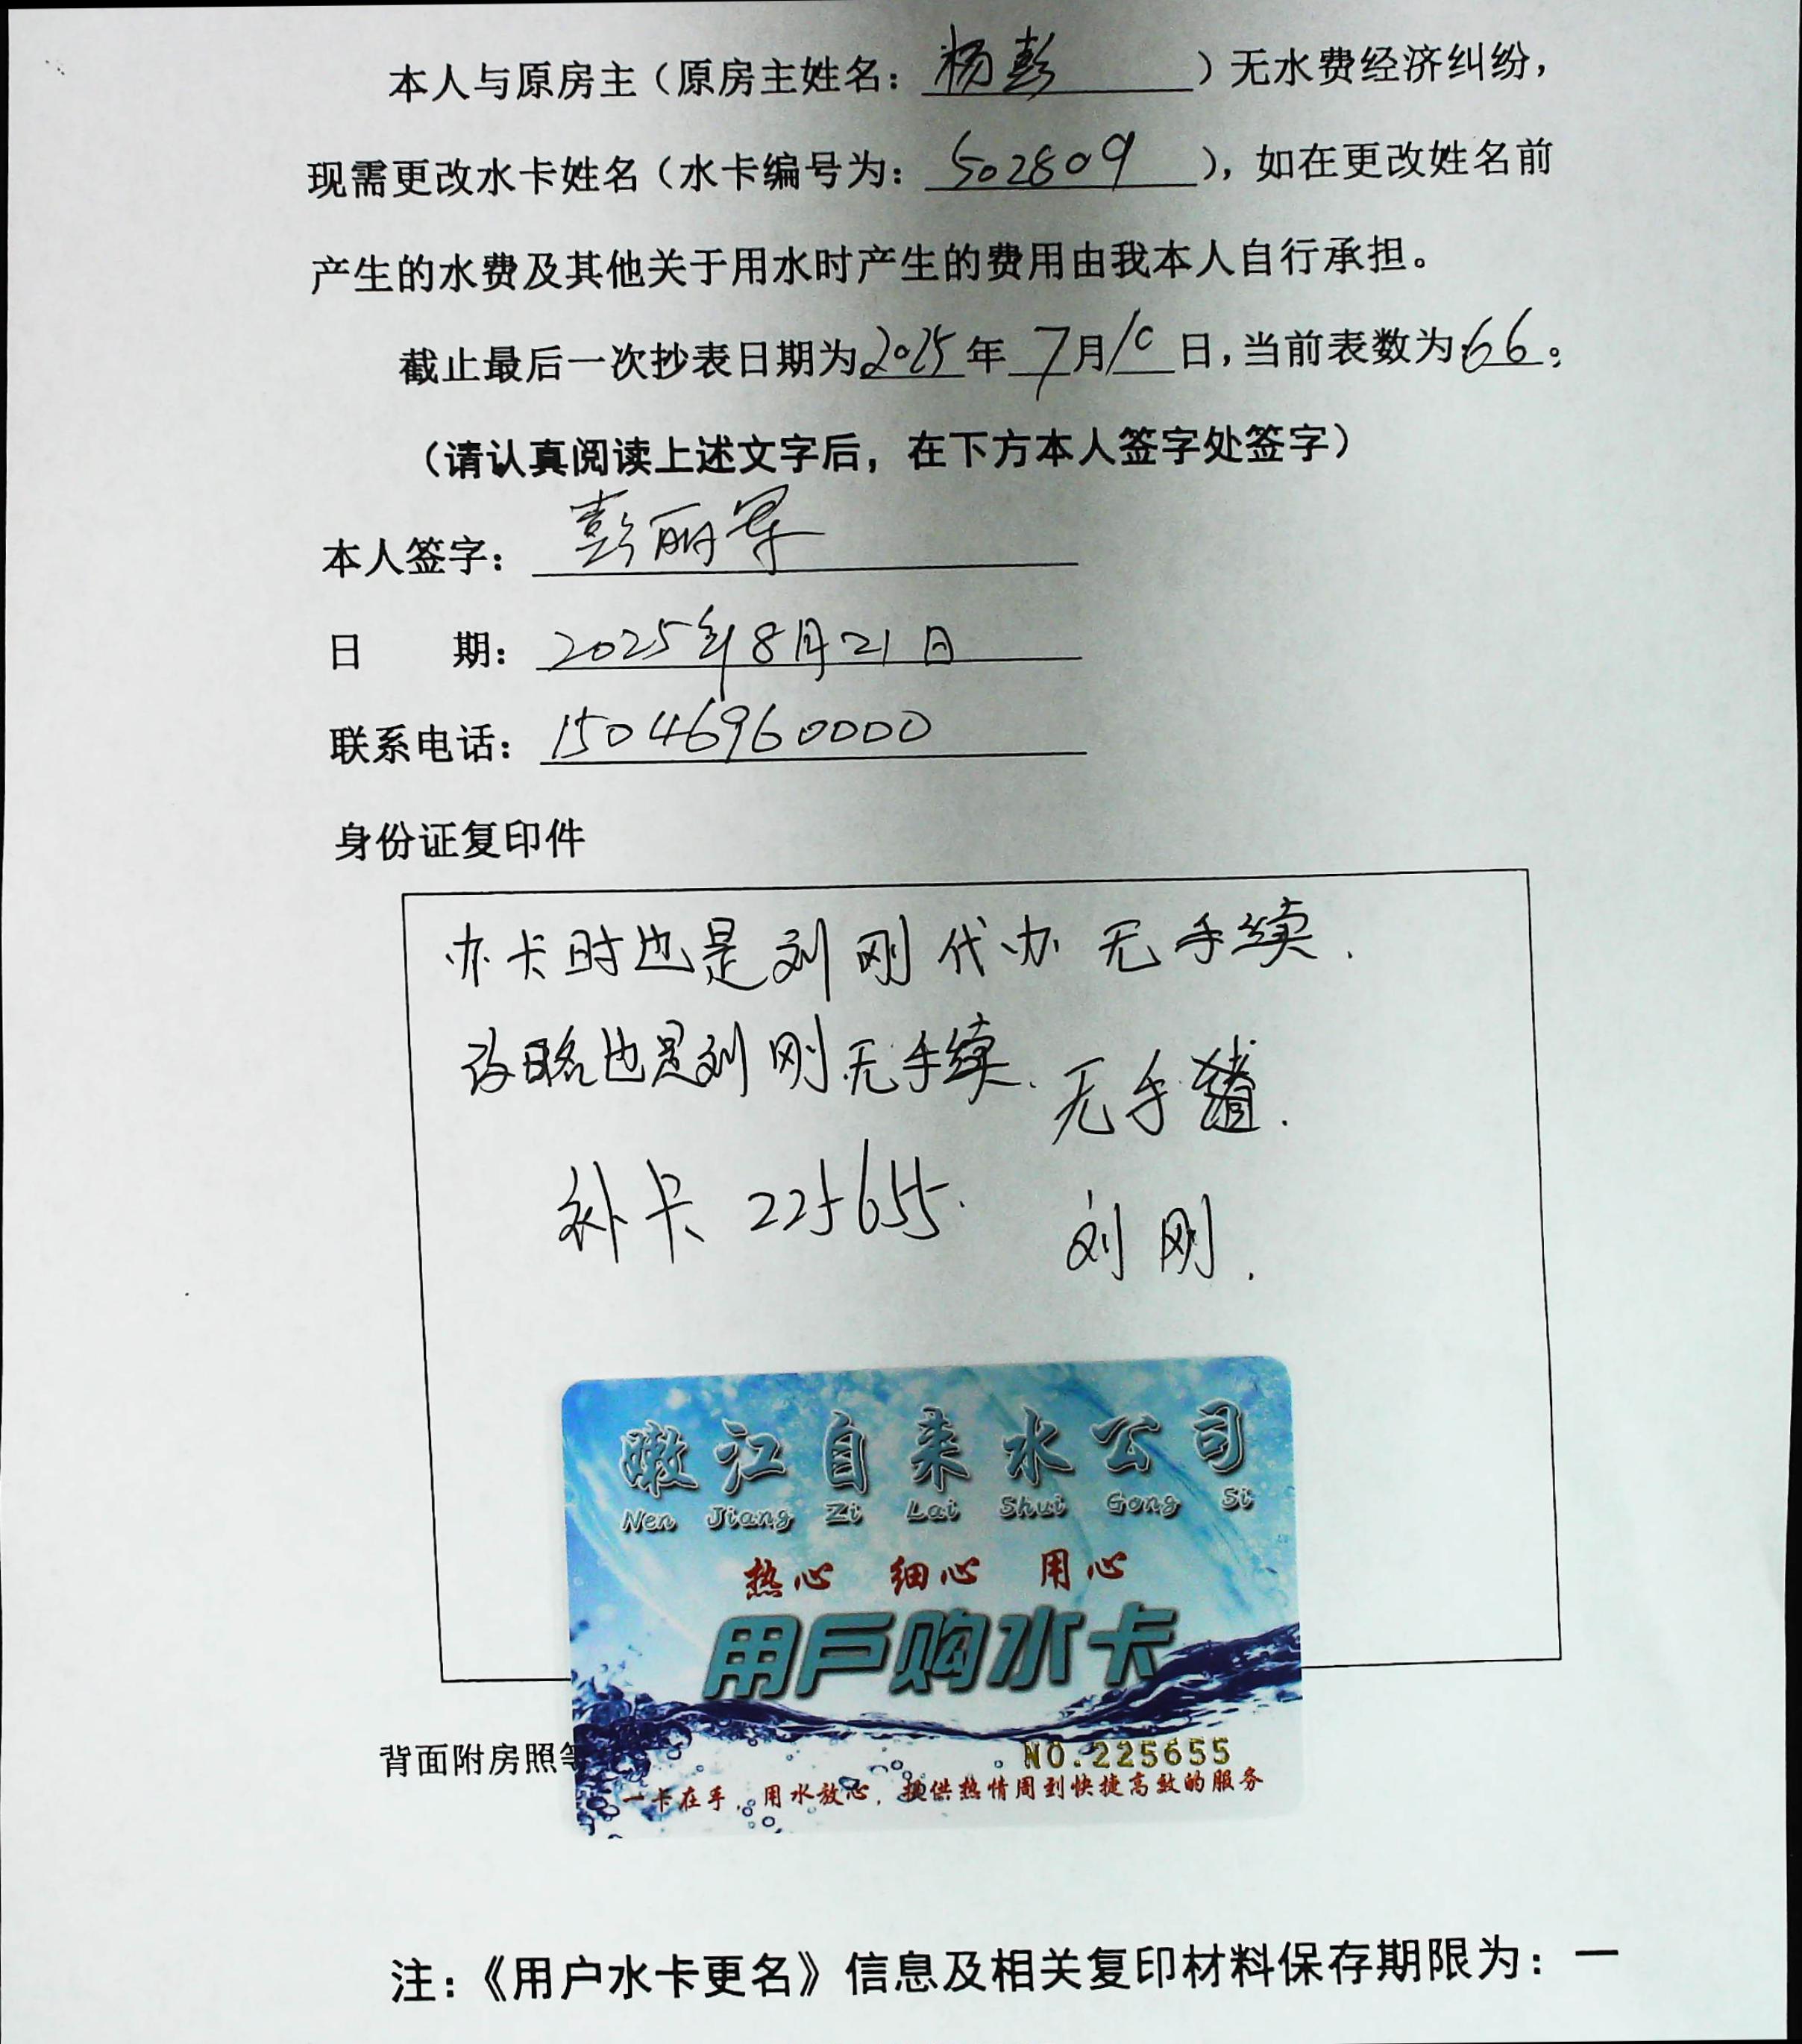 本人与原房主（原房主姓名：杨彭）无水费经济纠纷，
现需更改水卡姓名（水卡编号为：502809），如在更改姓名前
产生的水费及其他关于用水时产生的费用由我本人自行承担。
截止最后一次抄表日期为2025年7月10日，当前表数为66；
（请认真阅读上述文字后，在下方本人签字处签字）
本人签字：彭丽军
日 期：2025年8月21日
联系电话：15046960000
身份证复印件
办卡时也是刘刚代办 无手续.
改略也是刘刚无手续.
无手
补卡 225655.
刘刚.
嫩江自来水公司
Nen Jiang Zi Lai Shui Gong Si
热心 细心 用心
用户购水卡
NO.225655
背面附房照等
一卡在手，用水放心，提供热情周到快捷高效的服务
注：《用户水卡更名》信息及相关复印材料保存期限为：一